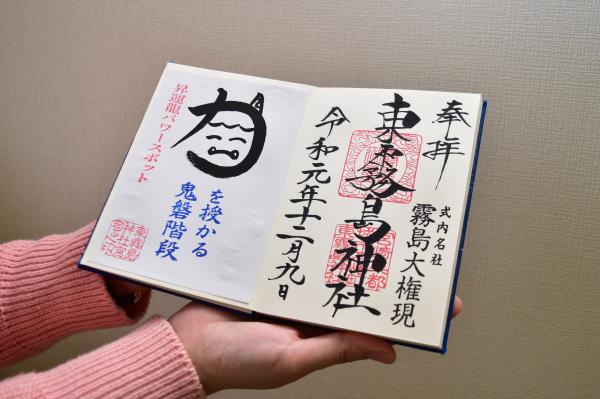 奉拝
式内名社
霧島大権現
東霧島神社
令和元年十二月九日
力
を授かる
鬼磐階段
昇運龍パワースポット